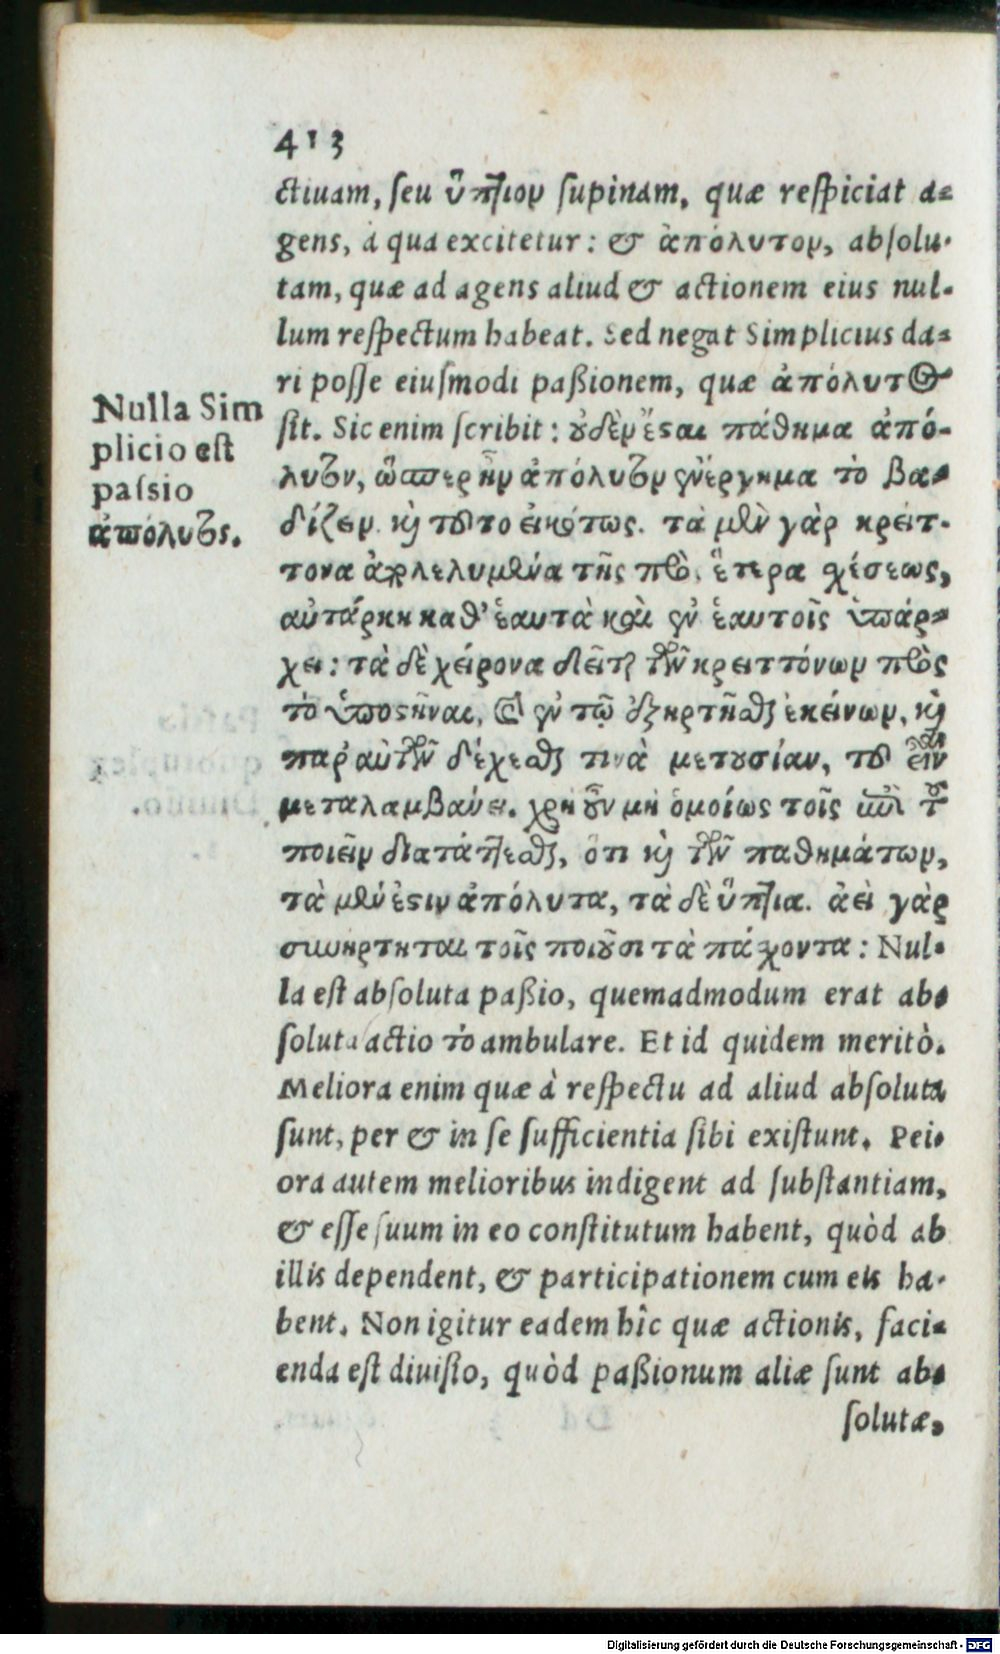 413
ctiuam, ſeu ὕπτιον ſupinam, quæ reſpiciat a-
gens, à qua excitetur: & ἀπόλυτον, abſolu-
tam, quæ ad agens aliud & actionem eius nul-
lum reſpectum habeat. Sed negat Simplicius da-
ri poſſe eiuſmodi paßionem, quæ ἀπόλυτος
ſit. Sic enim ſcribit: οὐδὲν ἔςαι πάθημα ἀπό-
λυτον, ὥσπερ ἦν ἀπόλυτον ἐνέργημα τὸ βα-
δίζειν. καὶ τοῦτο εἰκότως. τὰ μὲν γὰρ κρείτ-
τονα ἀπολελυμένα τῆς πρὸς ἕτερα σχέσεως,
αὐτάρκη καθ' ἑαυτὰ καὶ ἐν ἑαυτοῖς ὑπάρ-
χει: τὰ δὲ χείρονα δεῖται τῶν κρειττόνων πρὸς
τὸ ὑποςῆναι, καὶ ἐν τῷ ἐξηρτῆσθαι ἐκείνων, καὶ
παρ' αὐτῶν δέχεσθαι τινὰ μετουσίαν, τὸ εἶναι
μεταλαμβάνει. χρὴ οὖν μὴ ὁμοίως τοῖς ἐπὶ τοῦ
ποιεῖν διατάττεσθαι, ὅτι καὶ τῶν παθημάτων,
τὰ μέν ἐςιν ἀπόλυτα, τὰ δὲ ὕπτια. ἀεὶ γὰρ
συνήρτηται τοῖς ποιοῦσι τὰ πάσχοντα: Nul-
la eſt abſoluta paßio, quemadmodum erat ab-
ſoluta actio τὸ ambulare. Et id quidem meritò.
Meliora enim quæ à reſpectu ad aliud abſoluta
ſunt, per & in ſe ſufficientia ſibi exiſtunt. Pei-
ora autem melioribus indigent ad ſubſtantiam,
& eſſe ſuum in eo conſtitutum habent, quòd ab
illis dependent, & participationem cum eis ha-
bent. Non igitur eadem hîc quæ actionis, faci-
enda eſt diuiſio, quòd paßionum aliæ ſunt ab-
ſolutæ,
Nulla Sim
plicio eſt
paſsio
ἀπόλυτος.
Digitalisierung gefördert durch die Deutsche Forschungsgemeinschaft - DFG